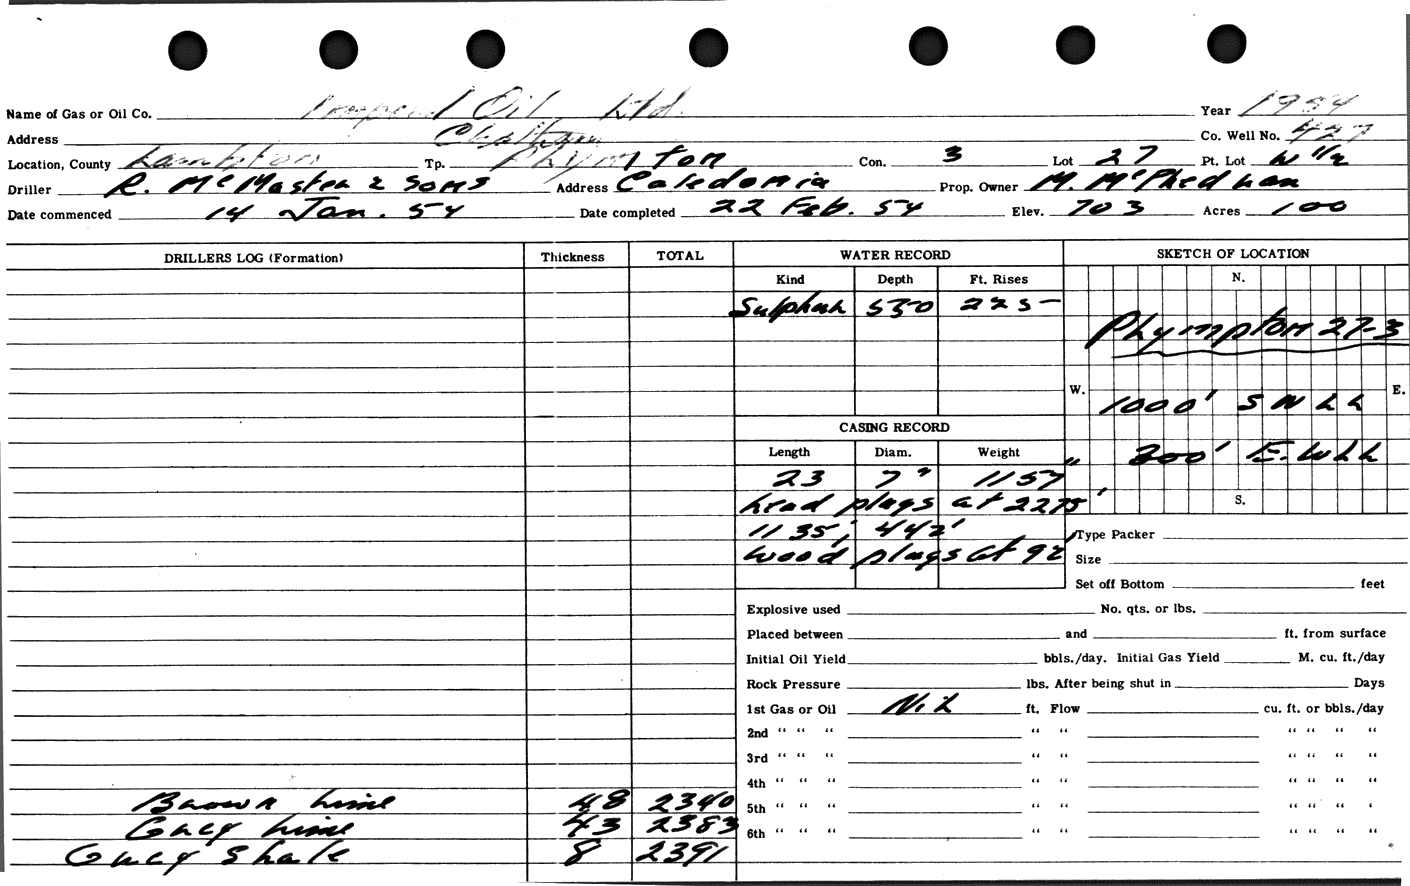 Name of Gas or Oil Co. Imperial Oil Ltd. Year 1954
Address Chatham Co. Well No. 427
Location, County Lambton Tp. Plympton Con. 3 Lot 27 Pt. Lot W 1/2
Driller R. McMaster & Sons Address Caledonia Prop. Owner M. McPhedran
Date commenced 14 Jan. 54 Date completed 22 Feb. 54 Elev. 703 Acres 100
DRILLERS LOG (Formation) Thickness TOTAL WATER RECORD SKETCH OF LOCATION
Kind Depth Ft. Rises N.
Sulphur 530 225
Plympton 27-3
W. E.
1000' S N L L
CASING RECORD
Length Diam. Weight
300' E. W L L
23 7" 1157
Lead plugs at 2275'
S.
1135', 442'
Wood plugs at 92'
Type Packer
Size
Set off Bottom feet
Explosive used No. qts. or lbs.
Placed between and ft. from surface
Initial Oil Yield bbls./day. Initial Gas Yield M. cu. ft./day
Rock Pressure lbs. After being shut in Days
1st Gas or Oil Nil ft. Flow cu. ft. or bbls./day
2nd " " " " " " " " "
3rd " " " " " " " " "
4th " " " " " " " " "
Brown Lime 48 2340
5th " " " " " " " " '
Grey Lime 43 2383
6th " " " " " " " " "
Grey Shale 8 2391